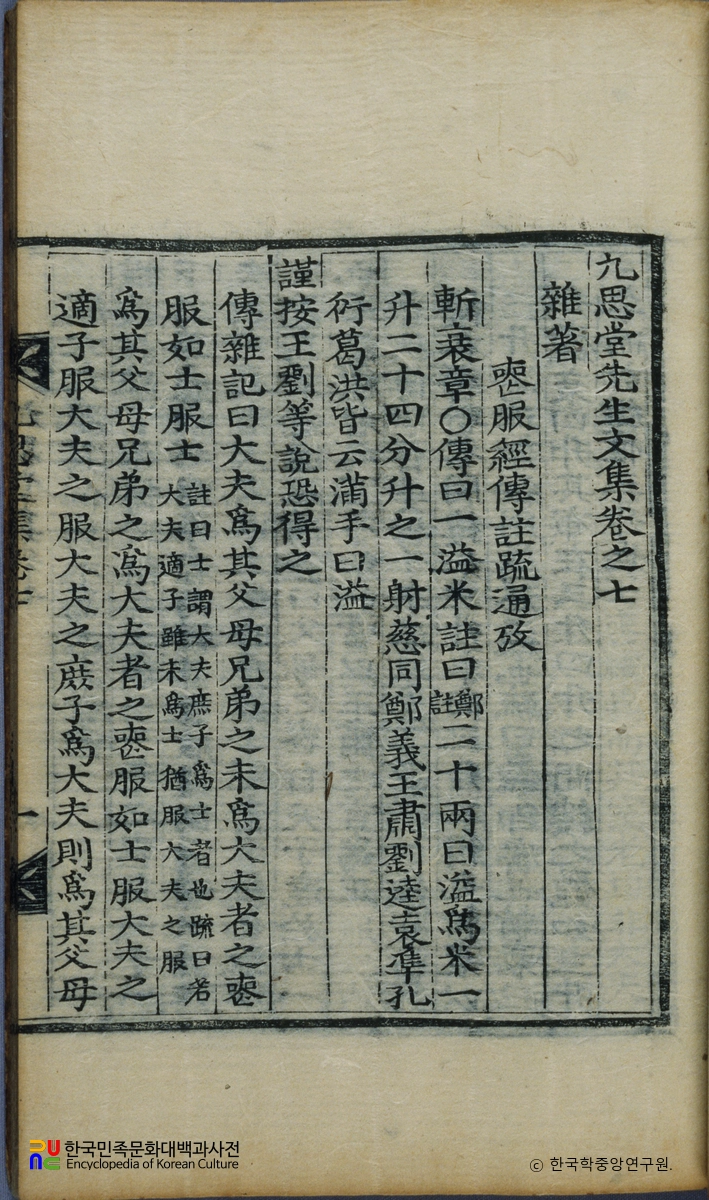 九思堂先生文集卷之七
雜著
喪服經傳註疏通攷
斬衰章○傳曰一溢米註曰鄭註二十兩曰溢爲米一
升二十四分升之一射慈同鄭義王肅劉逵袁準孔
衍葛洪皆云滿手曰溢
謹按王劉等說恐得之
傳雜記曰大夫爲其父母兄弟之未爲大夫者之喪
服如士服士註曰士謂大夫庶子爲士者也疏曰若大夫適子雖未爲士猶服大夫之服
爲其父母兄弟之爲大夫者之喪服如士服大夫之
適子服大夫之服大夫之庶子爲大夫則爲其父母
九思堂集卷七
一
한국민족문화대백과사전
Encyclopedia of Korean Culture
ⓒ 한국학중앙연구원.